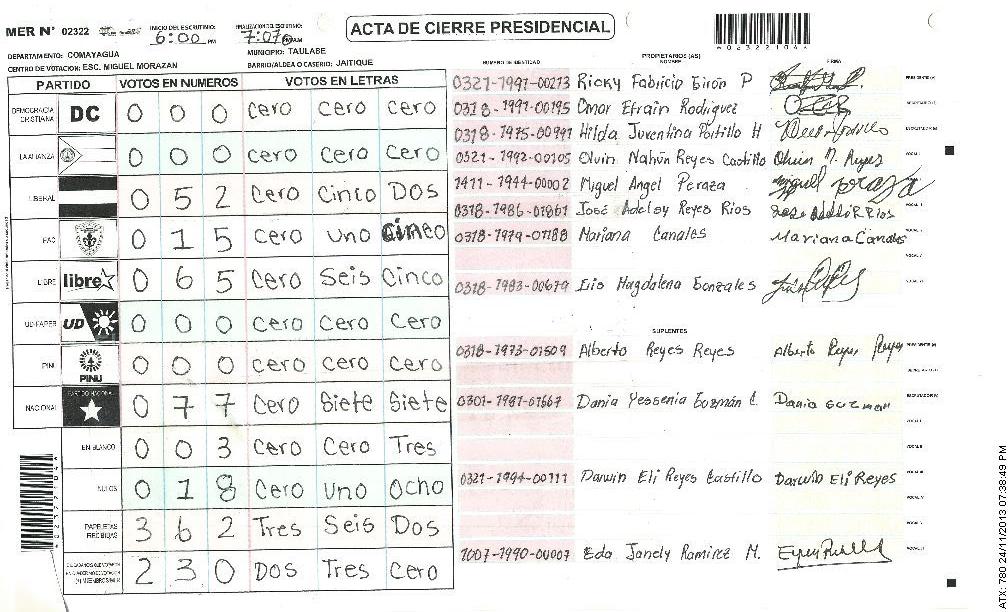 MER N° 02322
INICIO DEL ESCRUTINIO:
6:00 PM
FINALIZACION DEL ESCRUTINIO:
7:07
ACTA DE CIERRE PRESIDENCIAL
DEPARTAMENTO: COMAYAGUA
MUNICIPIO: TAULABE
CENTRO DE VOTACION: ESC. MIGUEL MORAZAN
BARRIO/ALDEA O CASERIO: JAITIQUE
PARTIDO VOTOS EN NUMEROS VOTOS EN LETRAS
DEMOCRACIA CRISTIANA DC 0 0 0 Cero Cero Cero
LA ALIANZA 0 0 0 Cero Cero Cero
LIBERAL 0 5 2 Cero Cinco Dos
PAC 0 1 5 Cero Uno Cinco
LIBRE libre 0 6 5 Cero Seis Cinco
UD-FAPER UD 0 0 0 Cero Cero Cero
PINU PINU 0 0 0 Cero Cero Cero
NACIONAL PARTIDO NACIONAL 0 7 7 Cero Siete Siete
EN BLANCO 0 0 3 Cero Cero Tres
NULOS 0 1 8 Cero Uno Ocho
PAPELETAS RECIBIDAS 3 6 2 Tres Seis Dos
2 3 0 Dos Tres Cero
NUMERO DE IDENTIDAD PROPIETARIOS (AS) NOMBRE FIRMA
0321-1991-00213 Ricky Fabricio Giron P
0318-1991-00195 Omar Efrain Rodriguez
0318-1975-00991 Hilda Juventina Portillo H
0321-1992-00105 Olvin Nahún Reyes Castillo Olvin N. Reyes
1411-1944-00002 Miguel Angel Peraza Miguel Peraza
0318-1986-01861 José Adelsy Reyes Rios
0318-1979-01188 Mariana Canales Mariana Canales
0318-1983-00679 Iris Magdalena Gonzales
SUPLENTES
0318-1973-01509 Alberto Reyes Reyes Alberto Reyes Reyes
0301-1981-01667 Dania Yessenia Guzmán C. Dania Guzman
0321-1994-00111 Darwin Eli Reyes Castillo Darwin Eli Reyes
1007-1990-00007 Eda Janely Ramirez M.
ATX: 780 24/11/2013 07:38:49 PM